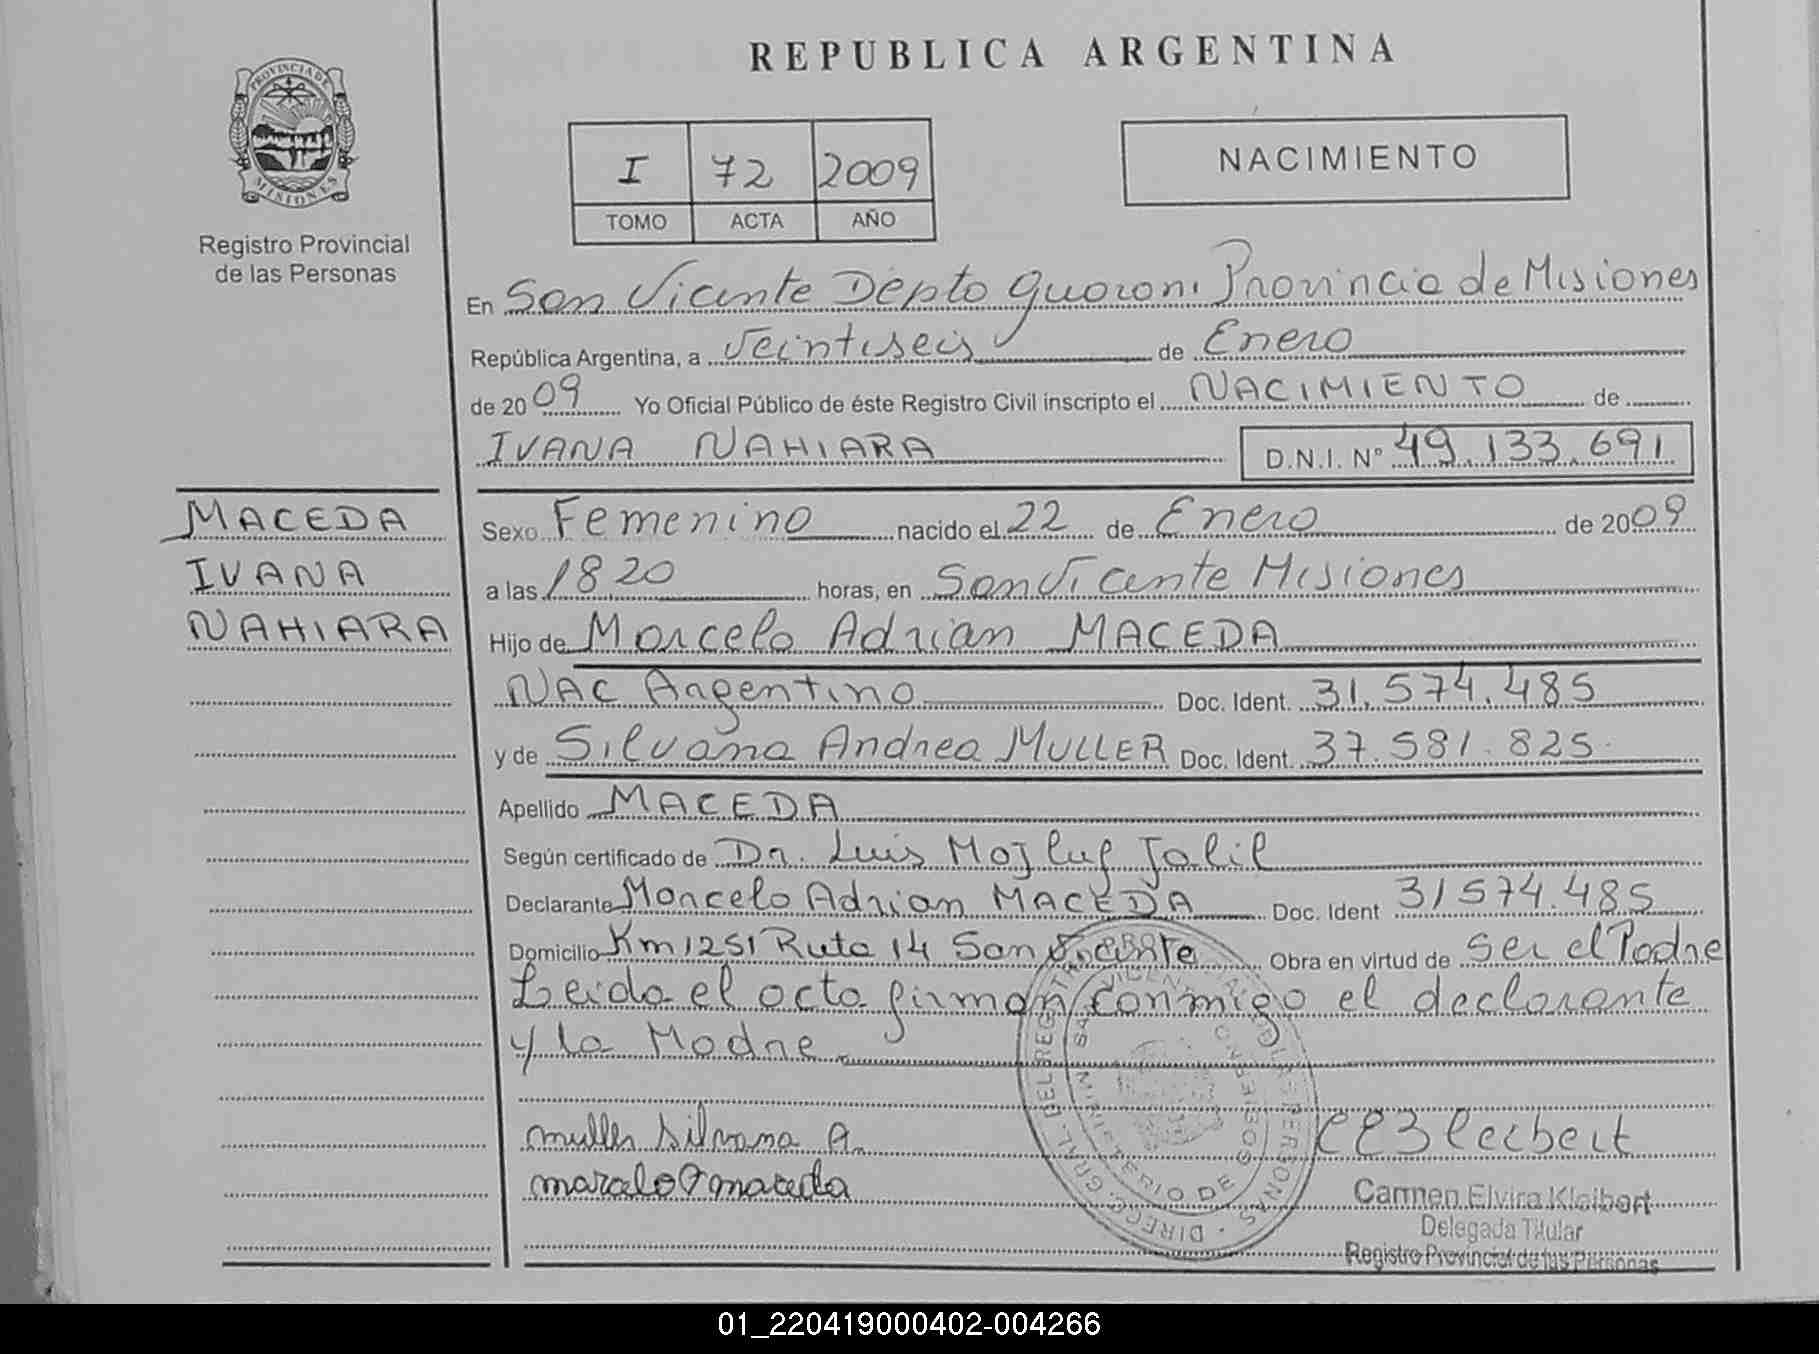 REPUBLICA ARGENTINA
PROVINCIA DE
MISIONES
Registro Provincial
de las Personas
I 72 2009
TOMO ACTA AÑO
NACIMIENTO
En San Vicente Depto Guarani Provincia de Misiones
República Argentina, a Veintiseis de Enero
de 2009 Yo Oficial Público de éste Registro Civil inscripto el NACIMIENTO de
IVANA NAHIARA D.N.I. Nº 49.133.691
MACEDA
IVANA
NAHIARA
Sexo Femenino nacido el 22 de Enero de 2009
a las 18 20 horas, en San Vicente Misiones
Hijo de Marcelo Adrian MACEDA
NAC Argentino Doc. Ident. 31.574.485
y de Silvana Andrea MULLER Doc. Ident. 37.581.825
Apellido MACEDA
Según certificado de Dr. Luis Mojluf Jalil
Declarante Marcelo Adrian MACEDA Doc. Ident 31574.485
Domicilio Km 1251 Ruta 14 San Vicente Obra en virtud de ser el Padre
Leida el acta firman conmigo el declarante
y la Madre
muller silvana A.
marcelo maceda
Carmen Elvira Kleibert
Delegada Titular
Registro Provincial de las Personas
01_220419000402-004266